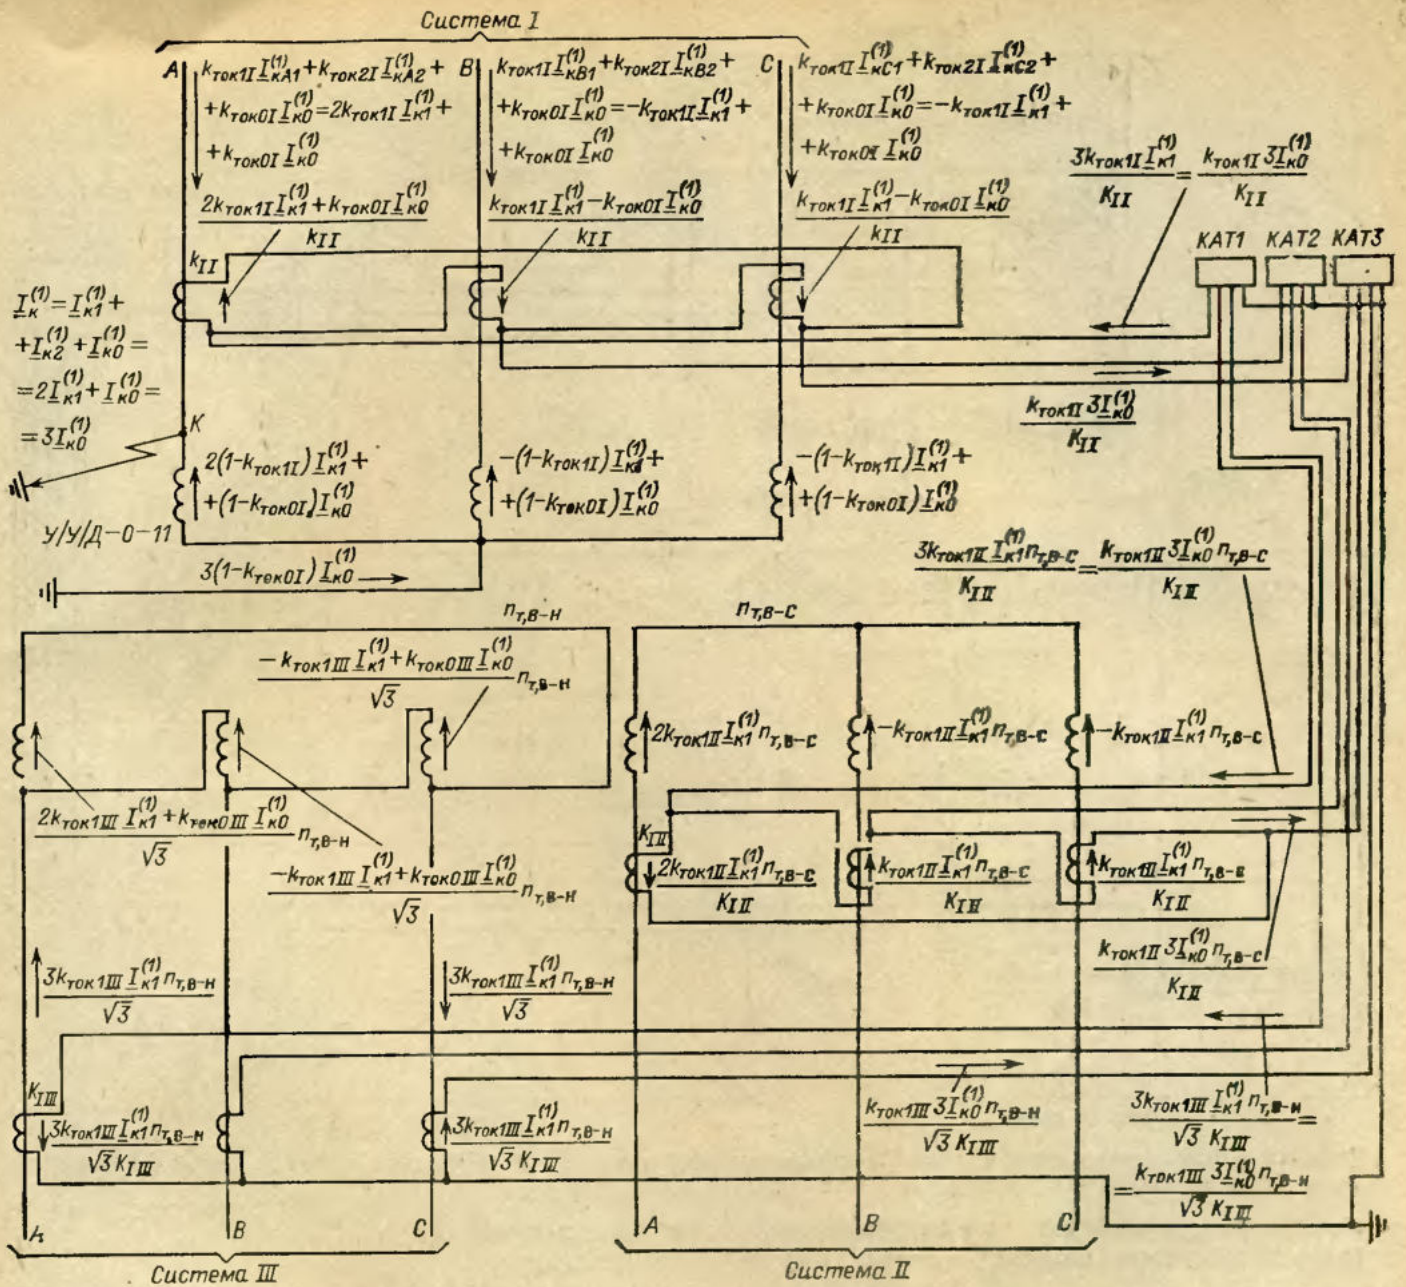 Система I
A
k_ток1I I_кA1^(1) + k_ток2I I_кA2^(1) +
+ k_ток0I I_к0^(1) = 2k_ток1I I_к1^(1) +
+ k_ток0I I_к0^(1)
2k_ток1I I_к1^(1) + k_ток0I I_к0^(1)
k_II
B
k_ток1I I_кB1^(1) + k_ток2I I_кB2^(1) +
+ k_ток0I I_к0^(1) = -k_ток1I I_к1^(1) +
+ k_ток0I I_к0^(1)
k_ток1I I_к1^(1) - k_ток0I I_к0^(1)
k_II
C
k_ток1I I_кC1^(1) + k_ток2I I_кC2^(1) +
+ k_ток0I I_к0^(1) = -k_ток1I I_к1^(1) +
+ k_ток0I I_к0^(1)
k_ток1I I_к1^(1) - k_ток0I I_к0^(1)
k_II
3k_ток1I I_к1^(1) / K_II = k_ток1I 3I_к0^(1) / K_II
КАТ1 КАТ2 КАТ3
k_II
I_к^(1) = I_к1^(1) +
+ I_к2^(1) + I_к0^(1) =
= 2I_к1^(1) + I_к0^(1) =
= 3I_к0^(1)
K
k_ток1I 3I_к0^(1) / K_II
2(1-k_ток1I) I_к1^(1) +
+(1-k_ток0I) I_к0^(1)
-(1-k_ток1I) I_к1^(1) +
+(1-k_ток0I) I_к0^(1)
-(1-k_ток1I) I_к1^(1) +
+(1-k_ток0I) I_к0^(1)
У/У/Д-0-11
3(1-k_ток0I) I_к0^(1)
3k_ток1II I_к1^(1) n_т,в-с / K_III = k_ток1II 3I_к0^(1) n_т,в-с / K_III
n_т,в-н
n_т,в-с
-k_ток1III I_к1^(1) + k_ток0III I_к0^(1) / √3 n_т,в-н
2k_ток1II I_к1^(1) n_т,в-с
-k_ток1II I_к1^(1) n_т,в-с
-k_ток1II I_к1^(1) n_т,в-с
2k_ток1III I_к1^(1) + k_ток0III I_к0^(1) / √3 n_т,в-н
-k_ток1III I_к1^(1) + k_ток0III I_к0^(1) / √3 n_т,в-н
K_III
2k_ток1II I_к1^(1) n_т,в-с / K_III
k_ток1II I_к1^(1) n_т,в-с / K_III
k_ток1II I_к1^(1) n_т,в-с / K_III
k_ток1II 3I_к0^(1) n_т,в-с / K_III
3k_ток1III I_к1^(1) n_т,в-н / √3
3k_ток1III I_к1^(1) n_т,в-н / √3
K_IIII
3k_ток1III I_к1^(1) n_т,в-н / √3 K_IIII
3k_ток1III I_к1^(1) n_т,в-н / √3 K_IIII
k_ток1III 3I_к0^(1) n_т,в-н / √3 K_IIII
3k_ток1III I_к1^(1) n_т,в-н / √3 K_IIII =
= k_ток1III 3I_к0^(1) n_т,в-н / √3 K_IIII
A B C A B C
Система III
Система II